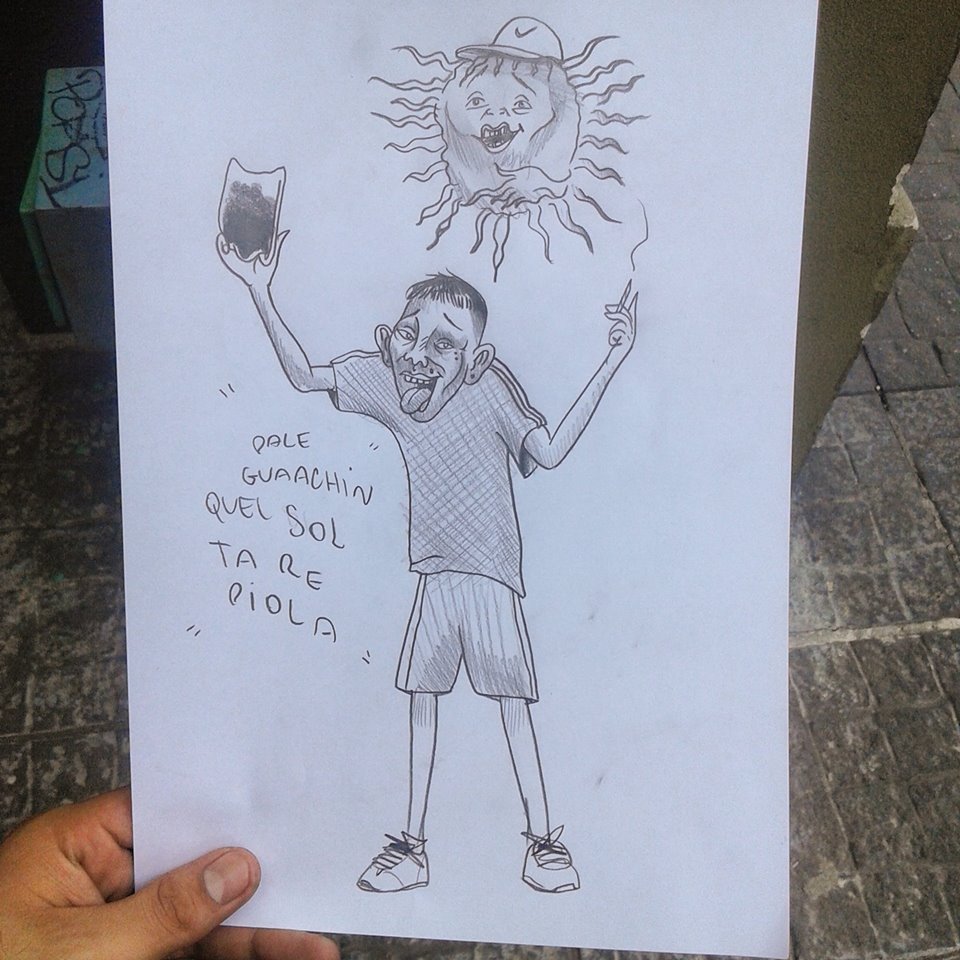 DALE
GUAACHiN
QUEL SOL
TA RE
PiOLA